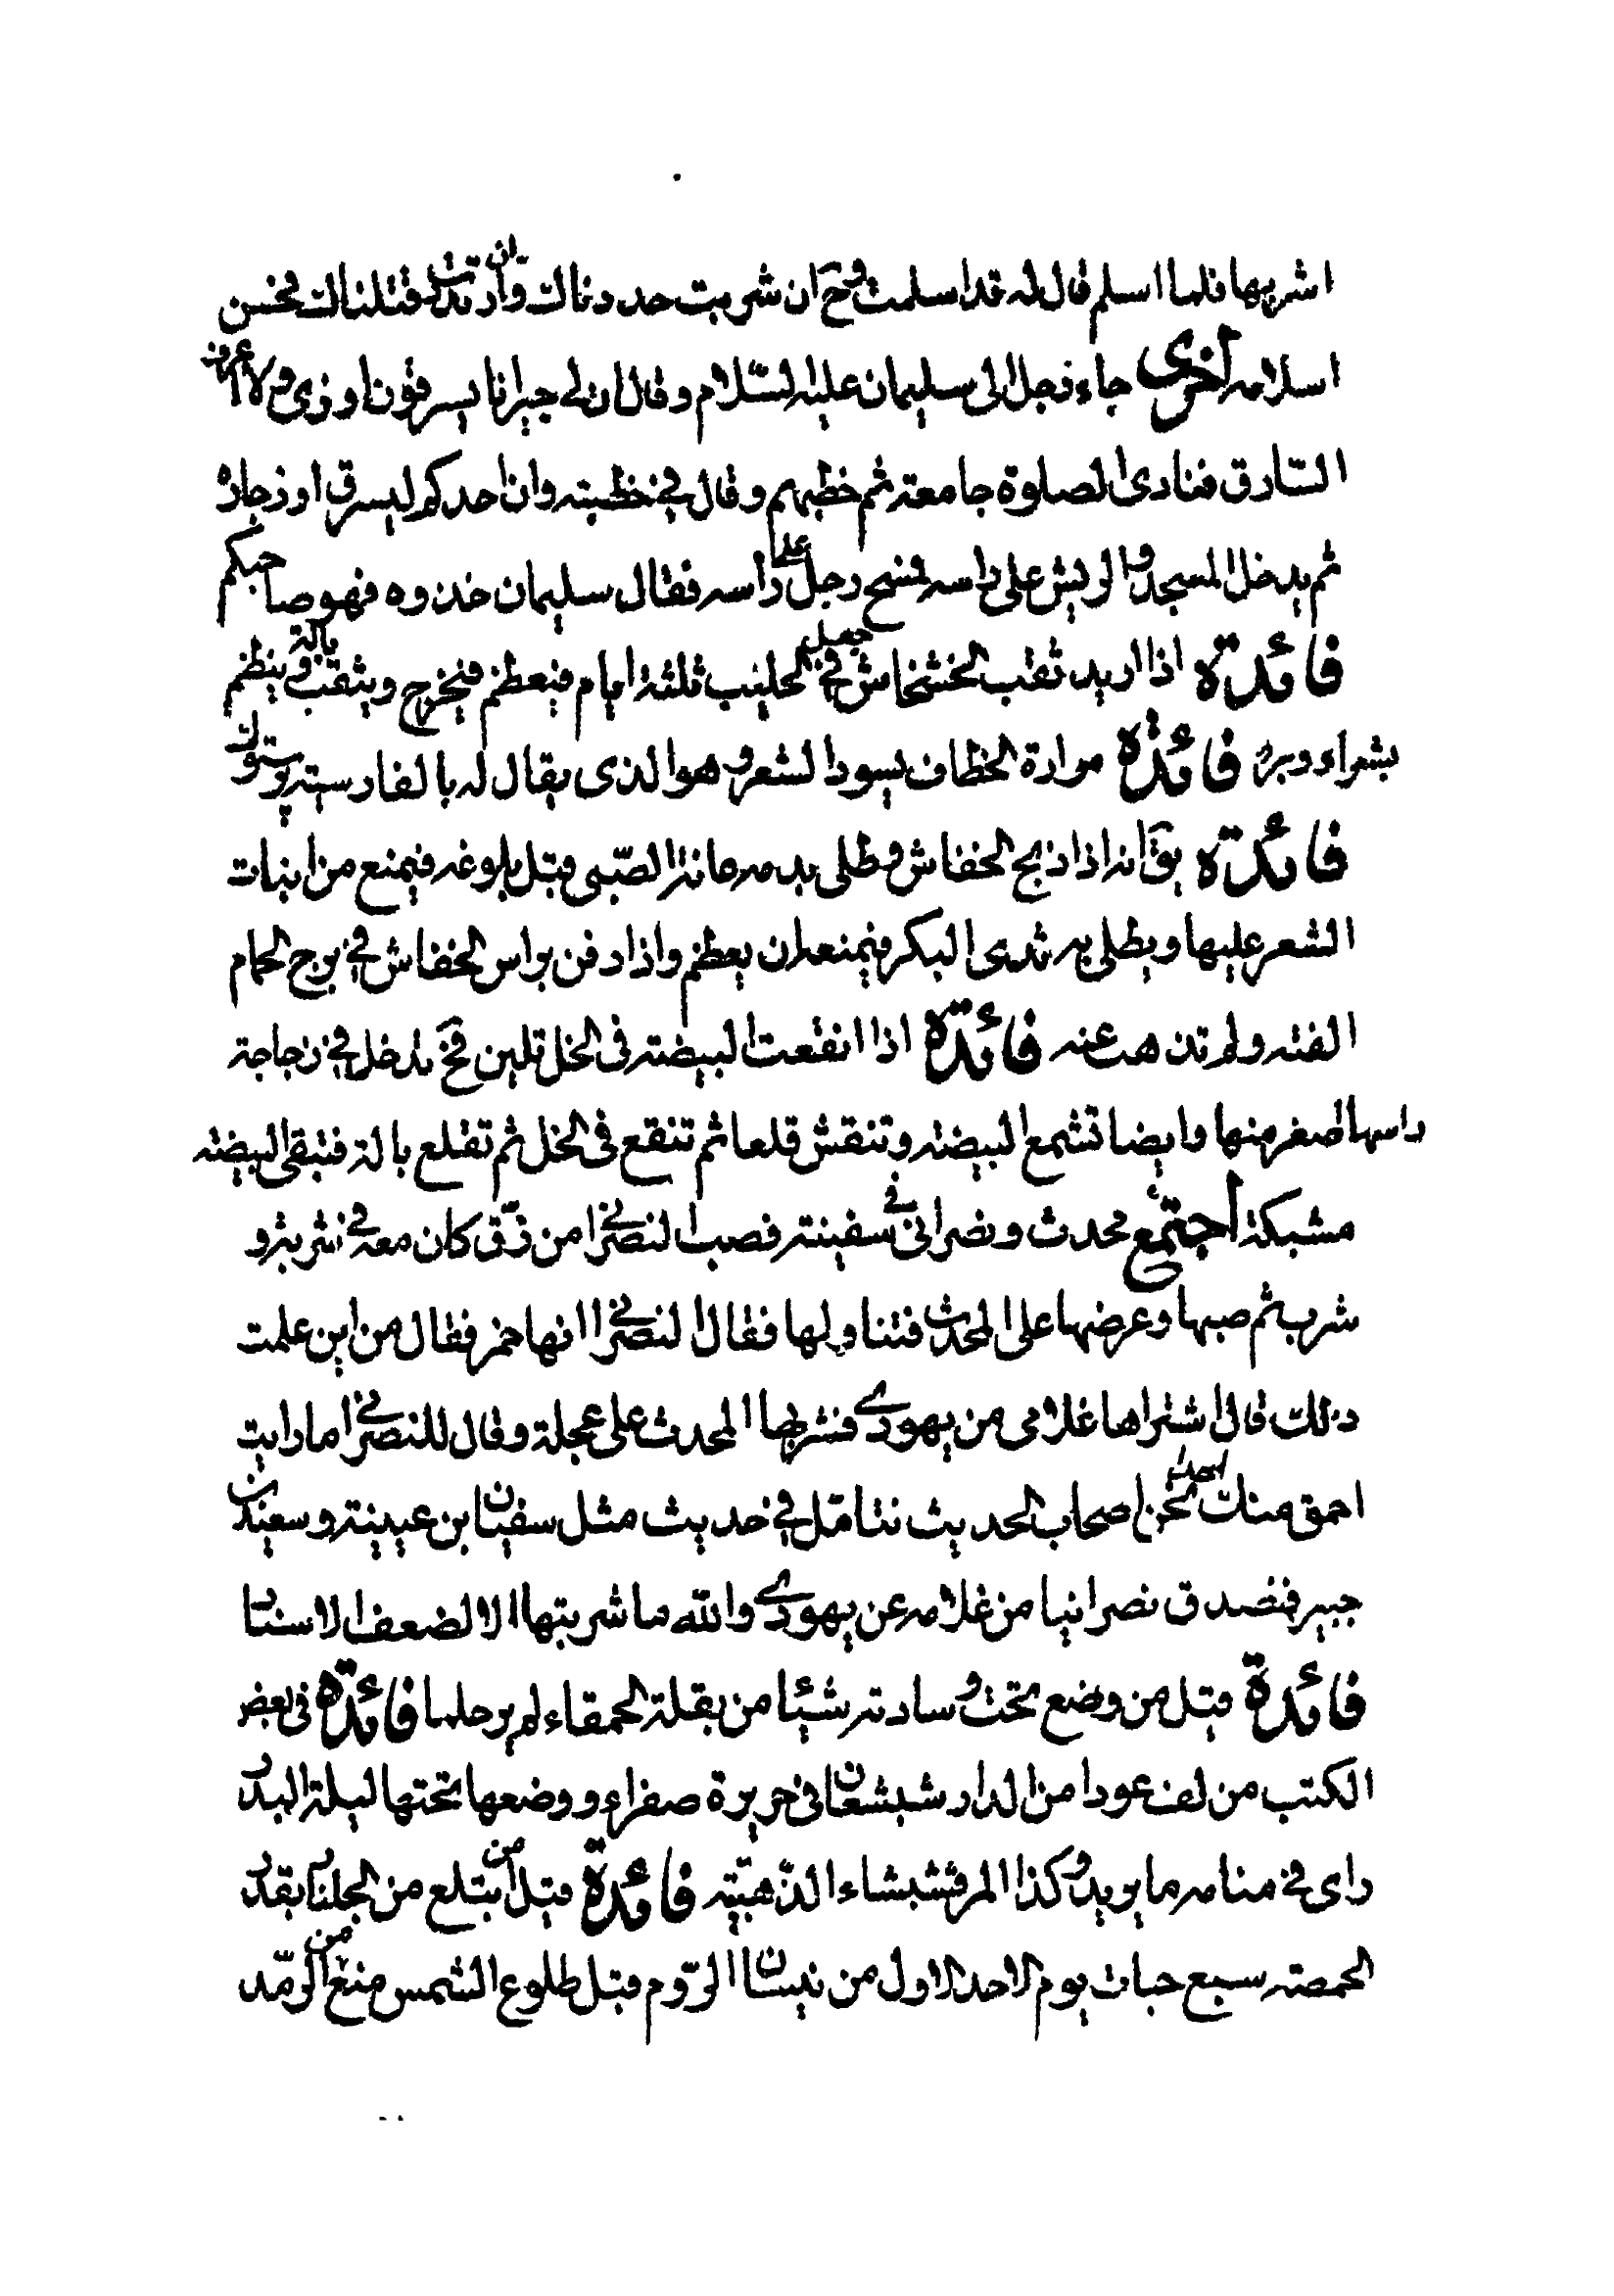 اشربها فلما اسلم قال له قد اسلمت وح ان شربت حددناك وان ارتددت قتلناك فحسن
اسلامه اخرى جاء رجل الى سليمان عليه السلام وقال ان لي جيرانا يسرقون اوزي ولا اعرف
السارق فنادى الصلوة جامعة ثم خطبهم وقال في خطبته وان احدكم ليسرق اوز جاره
ثم يدخل المسجد والريش على راسه فمسح رجل على راسه فقال سليمان خذوه فهو صاحبكم
فائدة اذا اريد ثقب الخشخاش جعل في الحليب ثلثة ايام فيعظم فيخرج ويثقب بالة وينظم
بشعر او وبره فائدة مرارة الخطاف يسود الشعر وهو الذي يقال له بالفارسية پرستوك
فائدة يق انه اذا ذبح الخفاش وطلى بدمه عانة الصبي قبل بلوغه فيمنع من ابنات
الشعر عليها ويطلى به ثدى البكر فيمنعه ان يعظم واذا دفن براس الخفاش في برج الحمام
الفته ولم تذهب عنه فائدة اذا انقعت البيضة فى الخل تلين فح تدخل في زجاجة
راسها اصغر منها وايضا تشمع البيضة وتنقش قلعا ثم تنقع فى الخل ثم تقلع بالة فتبقى البيضة
مشبكة اجتمع محدث ونصرانى في سفينة فصب النصراني من زق كان معه في شربة و
شرب ثم صبها وعرضها على المحدث فتناولها فقال النصراني انها خمر فقال من اين علمت
ذلك قال اشتراها غلامى من يهودي فشربها المحدث على عجلة وقال للنصراني ما رايت
احمق منك نحن اصحاب الحديث نتامل في حديث مثل سفيان ابن عيينة وسعيد بن
جبير فنصدق نصرانيا من غلامه عن يهودي والله ما شربتها الا لضعف الاسناد
فائدة قيل من وضع تحت وسادته شيئا من بقلة الحمقاء لم ير حلما فائدة فى بعض
الكتب من لف عودا من الدارشيشعان فى حريرة صفراء ووضعها تحتها ليلة البدر
راى في منامه ما يريد وكذا المرقشيشاء الذهبية فائدة قيل من ابتلع من الجلنار بقدر
الحمصة سبع حبات يوم الاحد الاول من نيسان الروم قبل طلوع الشمس منع من الرمد